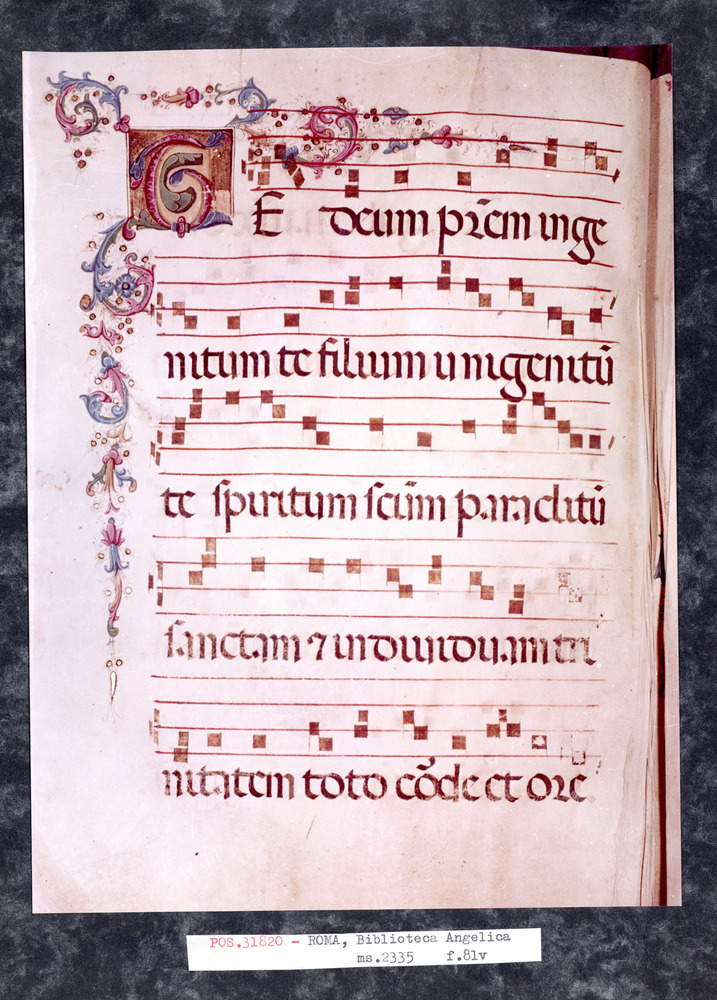 TE deum pr̄em inge
nitum te filium unigenitū
te spiritum scūm paraclitū
sanctam ⁊ indiuiduam tri
nitatem toto cōde et ore
POS.31820 - ROMA, Biblioteca Angelica
ms.2335 f.81v